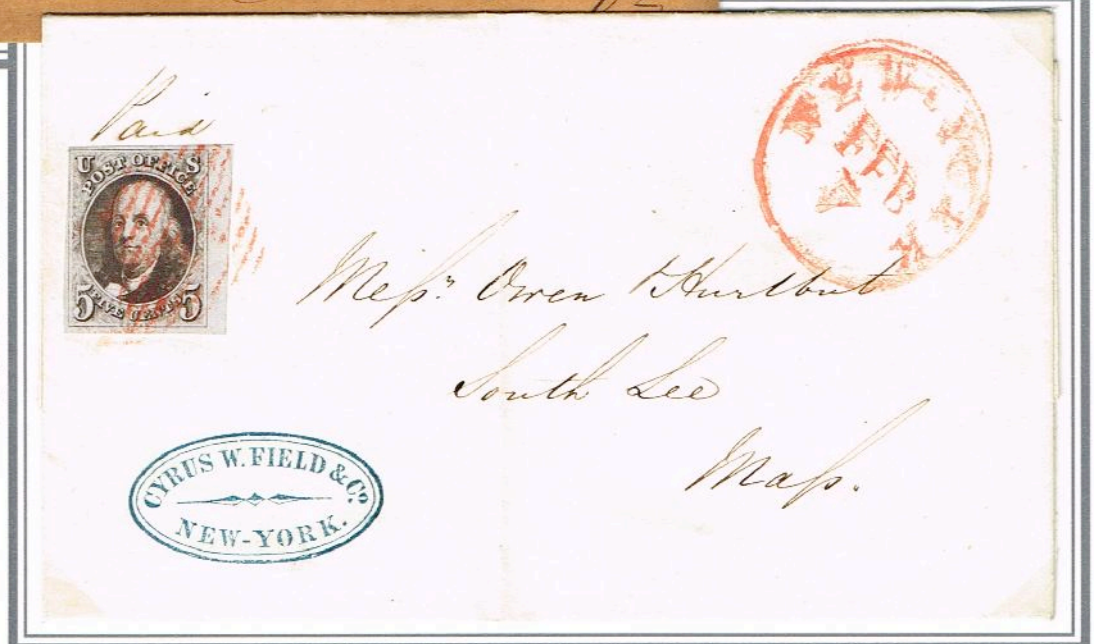 Paid
U S
POST OFFICE
5 FIVE CENTS 5
NEW-YORK
FEB
Meſsrs Owen & Hurlbut
South Lee
Maſs.
CYRUS W. FIELD & Co.
NEW-YORK.